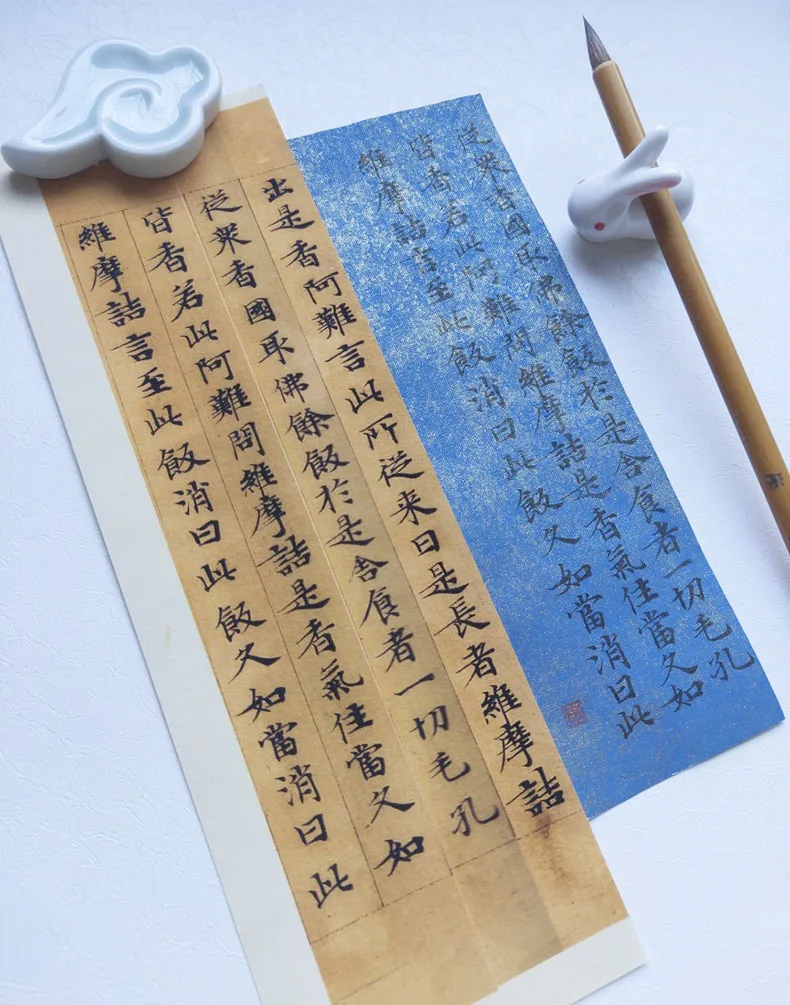 出是香阿難言此所從来曰是長者維摩詰
從衆香國取佛餘飯於是舍食者一切毛孔
皆香若此阿難問維摩詰是香氣住當久如
維摩詰言至此飯消曰此飯久如當消曰此
從衆香國取佛餘飯於是舍食者一切毛孔
皆香若此阿難問維摩詰是香氣住當久如
維摩詰言至此飯消曰此飯久如當消曰此